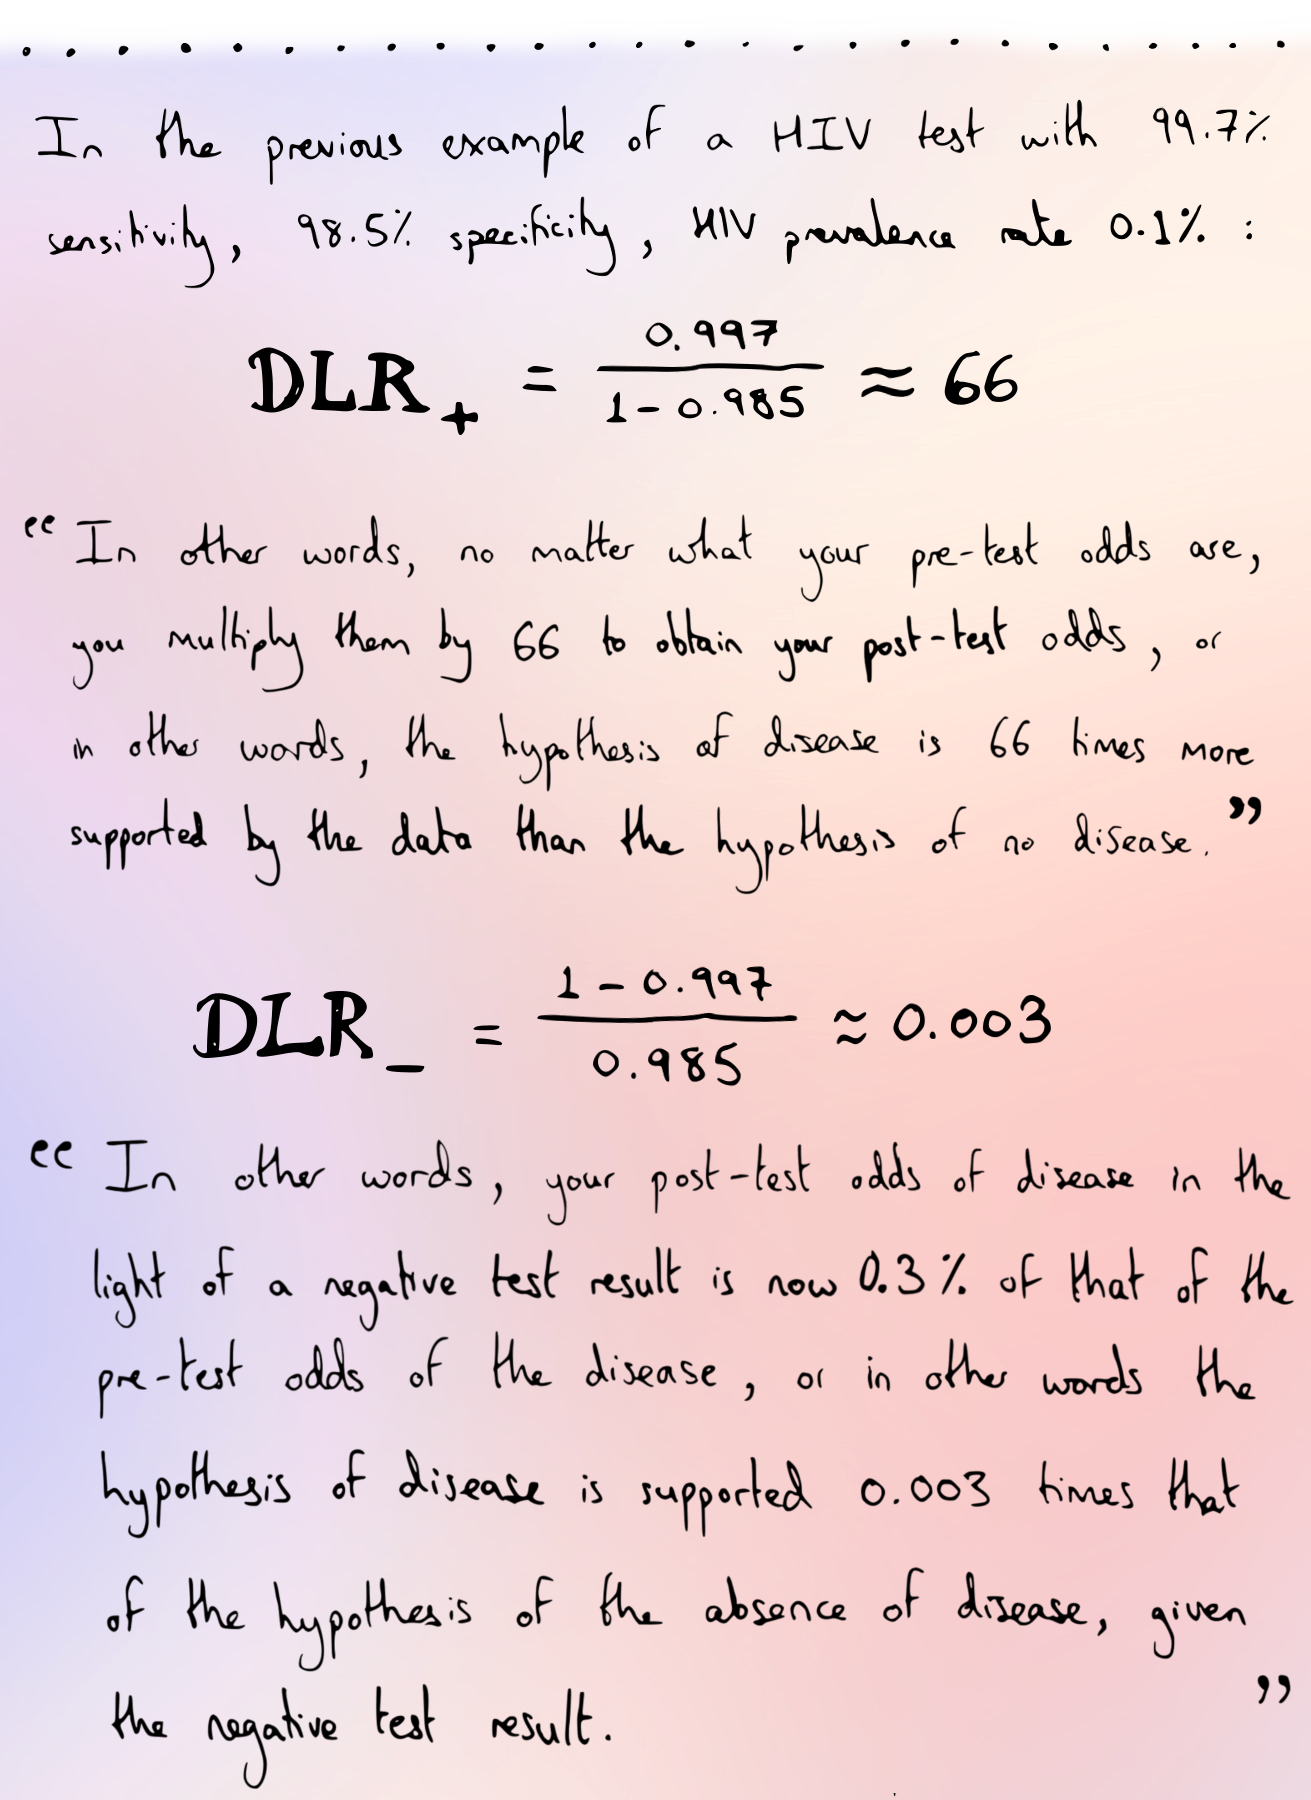 In the previous example of a HIV test with 99.7%
sensitivity, 98.5% specificity, HIV prevalence rate 0.1% :
DLR₊ = 0.997 / (1 - 0.985) ≈ 66
“ In other words, no matter what your pre-test odds are,
you multiply them by 66 to obtain your post-test odds, or
in other words, the hypothesis of disease is 66 times more
supported by the data than the hypothesis of no disease. ”
DLR₋ = (1 - 0.997) / 0.985 ≈ 0.003
“ In other words, your post-test odds of disease in the
light of a negative test result is now 0.3% of that of the
pre-test odds of the disease, or in other words the
hypothesis of disease is supported 0.003 times that
of the hypothesis of the absence of disease, given
the negative test result. ”